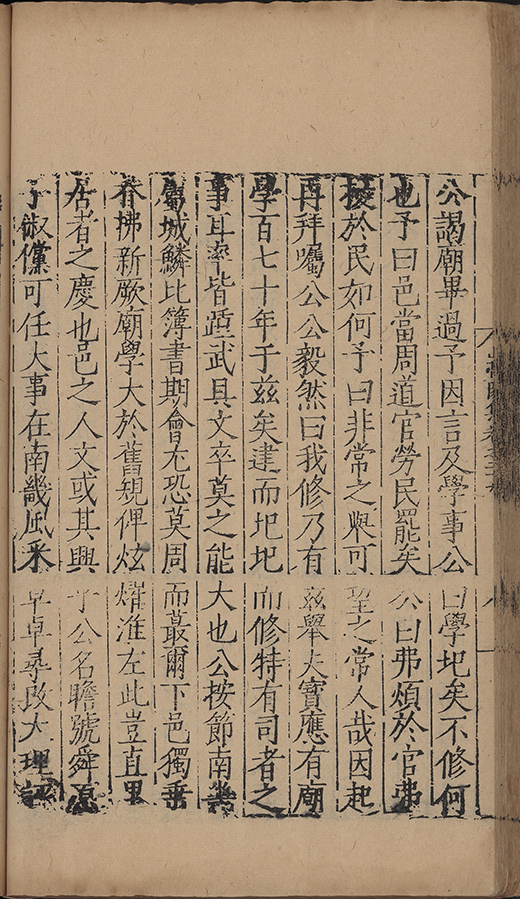 公謁廟畢過予因言及學事公曰學圯矣不修何
也予曰邑當周道官勞民罷矣公曰弗煩於官弗
擾於民如何予曰非常之舉可望之常人哉因起
再拜囑公公毅然曰我修乃有茲舉夫寶應有廟
學百七十年于茲矣建而圯圯而修特有司者之
事耳率皆踵武具文卒莫之能大也公按節南畿
屬城鱗比簿書期會尤恐莫周而蕞爾下邑獨垂
眷拂新厥廟學大於舊規俾炫燿淮左此豈直里
居者之慶也邑之人文或其興乎公名瞻號舜原
子俶儻可任大事在南畿風采卓卓尋改大理